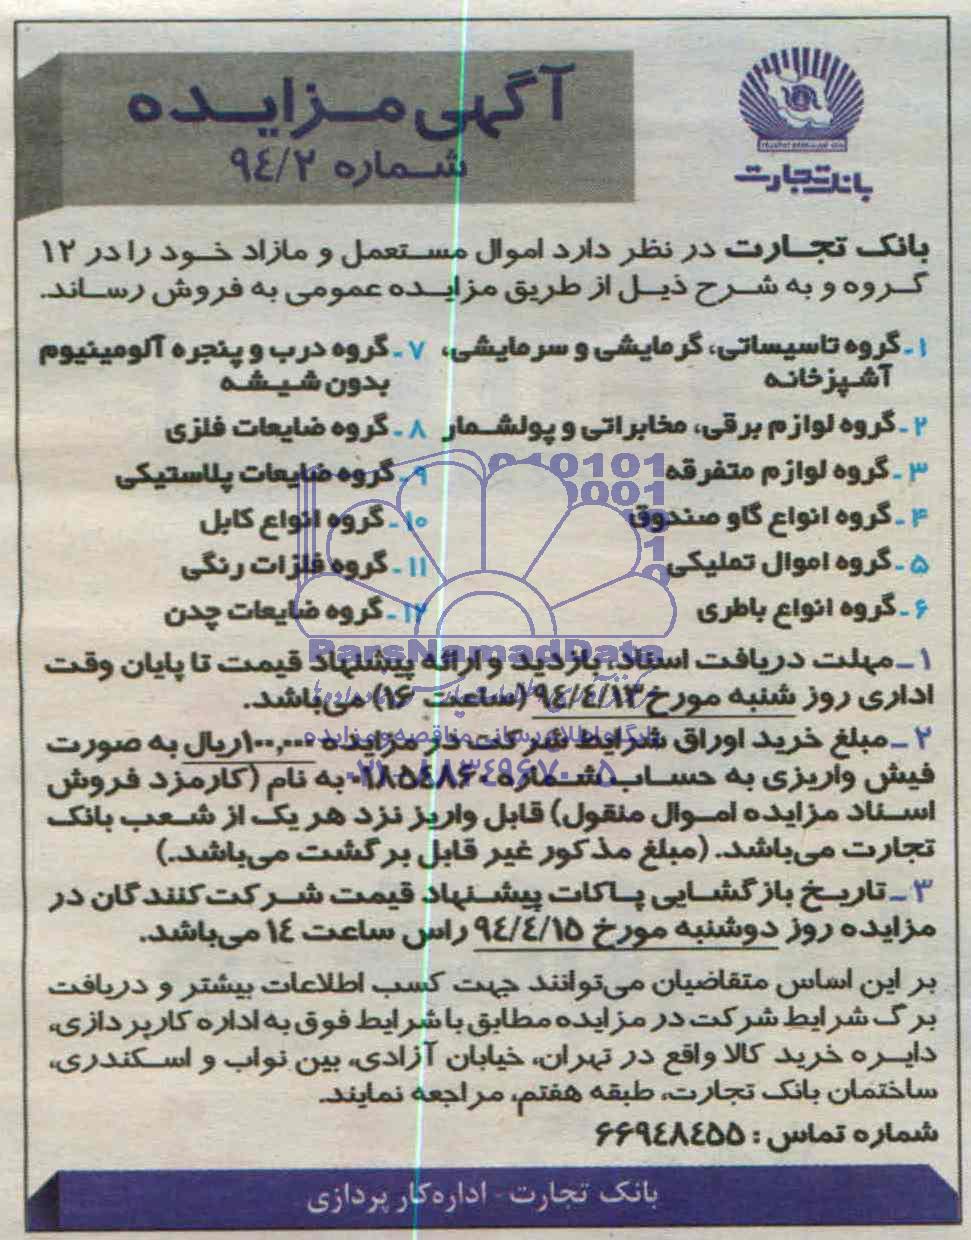 آگهی مزایده
شماره ۹۴/۲
بانک تجارت
بانک تجارت در نظر دارد اموال مستعمل و مازاد خود را در ۱۲
گروه و به شرح ذیل از طریق مزایده عمومی به فروش رساند.
۱- گروه تاسیساتی، گرمایشی و سرمایشی،
آشپزخانه
۲- گروه لوازم برقی، مخابراتی و پولشمار
۳- گروه لوازم متفرقه
۴- گروه انواع گاو صندوق
۵- گروه اموال تملیکی
۶- گروه انواع باطری
۷- گروه درب و پنجره آلومینیوم
بدون شیشه
۸- گروه ضایعات فلزی
۹- گروه ضایعات پلاستیکی
۱۰- گروه انواع کابل
۱۱- گروه فلزات رنگی
۱۲- گروه ضایعات چدن
ParsNamadData
۱- مهلت دریافت اسناد، بازدید و ارائه پیشنهاد قیمت تا پایان وقت
اداری روز شنبه مورخ ۹۴/۴/۱۳ (ساعت ۱۶) می‌باشد.
۲- مبلغ خرید اوراق شرایط شرکت در مزایده ۱۰۰,۰۰۰ ریال به صورت
پایگاه اطلاع رسانی مناقصه و مزایده
فیش واریزی به حساب شماره ۰۱۸۵۴۸۶۰ به نام (کارمزد فروش
۰۲۱-۸۸۳۴۹۶۷۰-۵
اسناد مزایده اموال منقول) قابل واریز نزد هر یک از شعب بانک
تجارت می‌باشد. (مبلغ مذکور غیر قابل برگشت می‌باشد.)
۳- تاریخ بازگشایی پاکات پیشنهاد قیمت شرکت‌کنندگان در
مزایده روز دوشنبه مورخ ۹۴/۴/۱۵ راس ساعت ۱۴ می‌باشد.
بر این اساس متقاضیان می‌توانند جهت کسب اطلاعات بیشتر و دریافت
برگ شرایط شرکت در مزایده مطابق با شرایط فوق به اداره کارپردازی،
دایره خرید کالا واقع در تهران، خیابان آزادی، بین نواب و اسکندری،
ساختمان بانک تجارت، طبقه هفتم، مراجعه نمایند.
شماره تماس : ۶۶۹۴۸۴۵۵
بانک تجارت - اداره کارپردازی